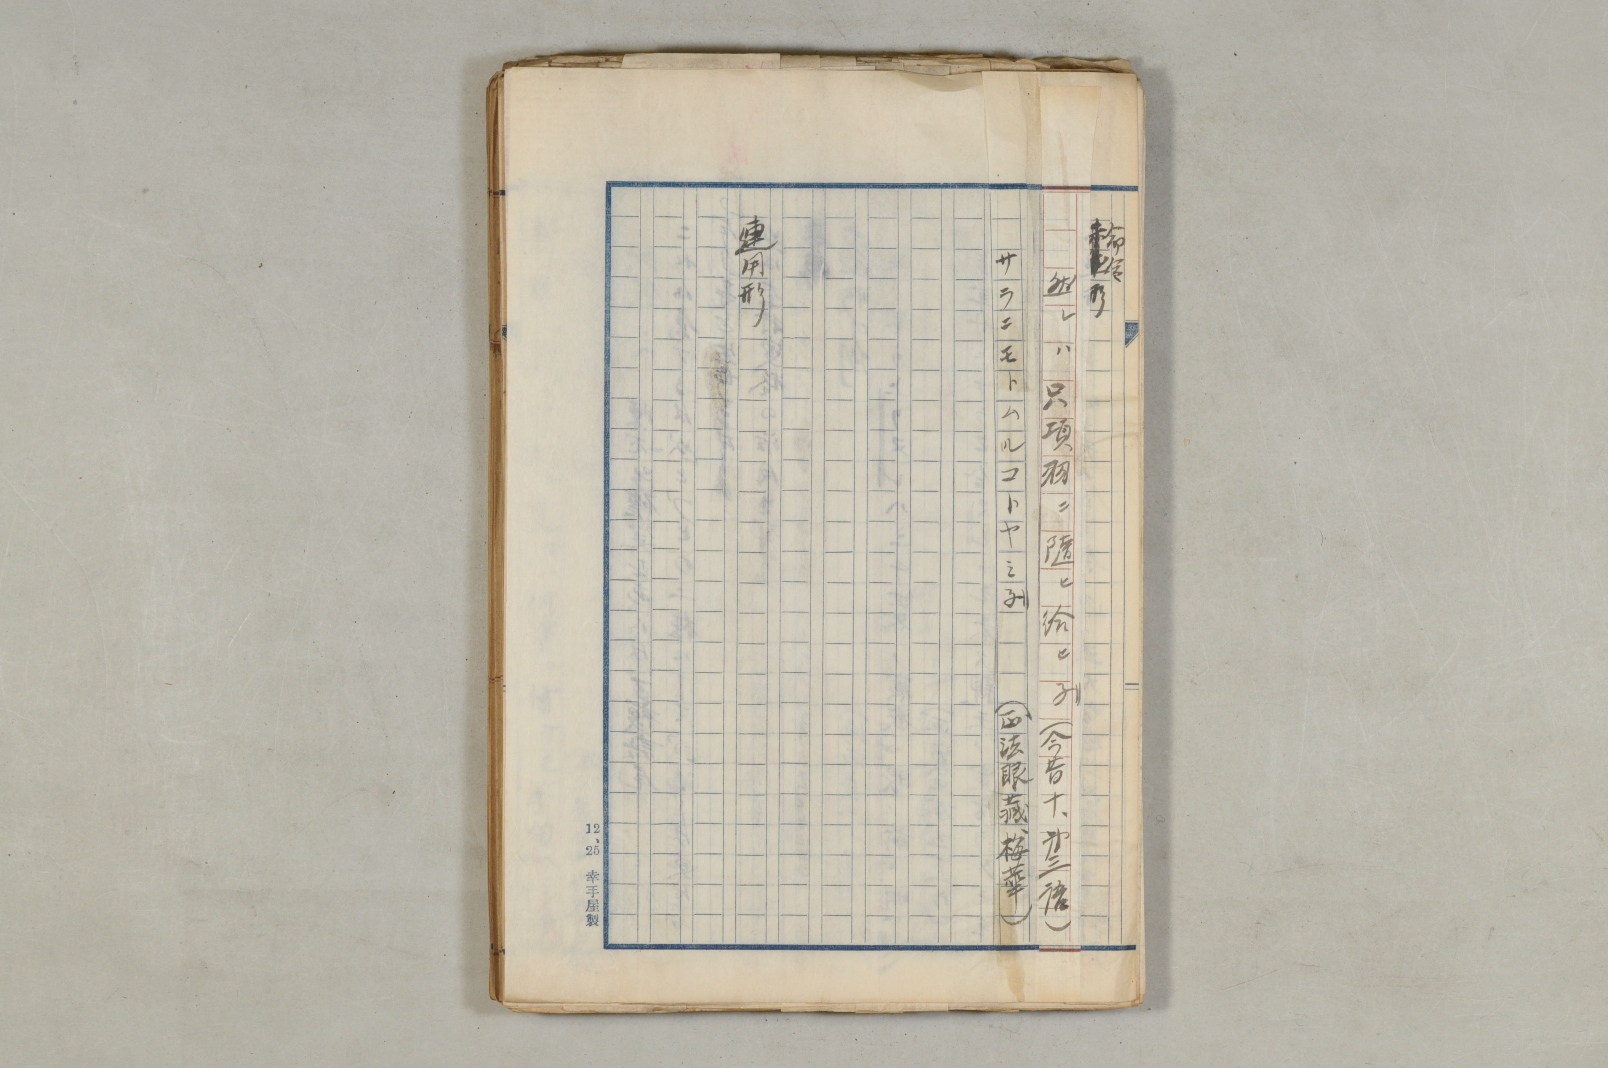 命令形
然レハ只項羽ニ随ヒ給ヒネ(今昔十、第三語)
サラニモトムルコトヤミネ(正法眼蔵、梅華)
連用形
12、25 幸手屋製